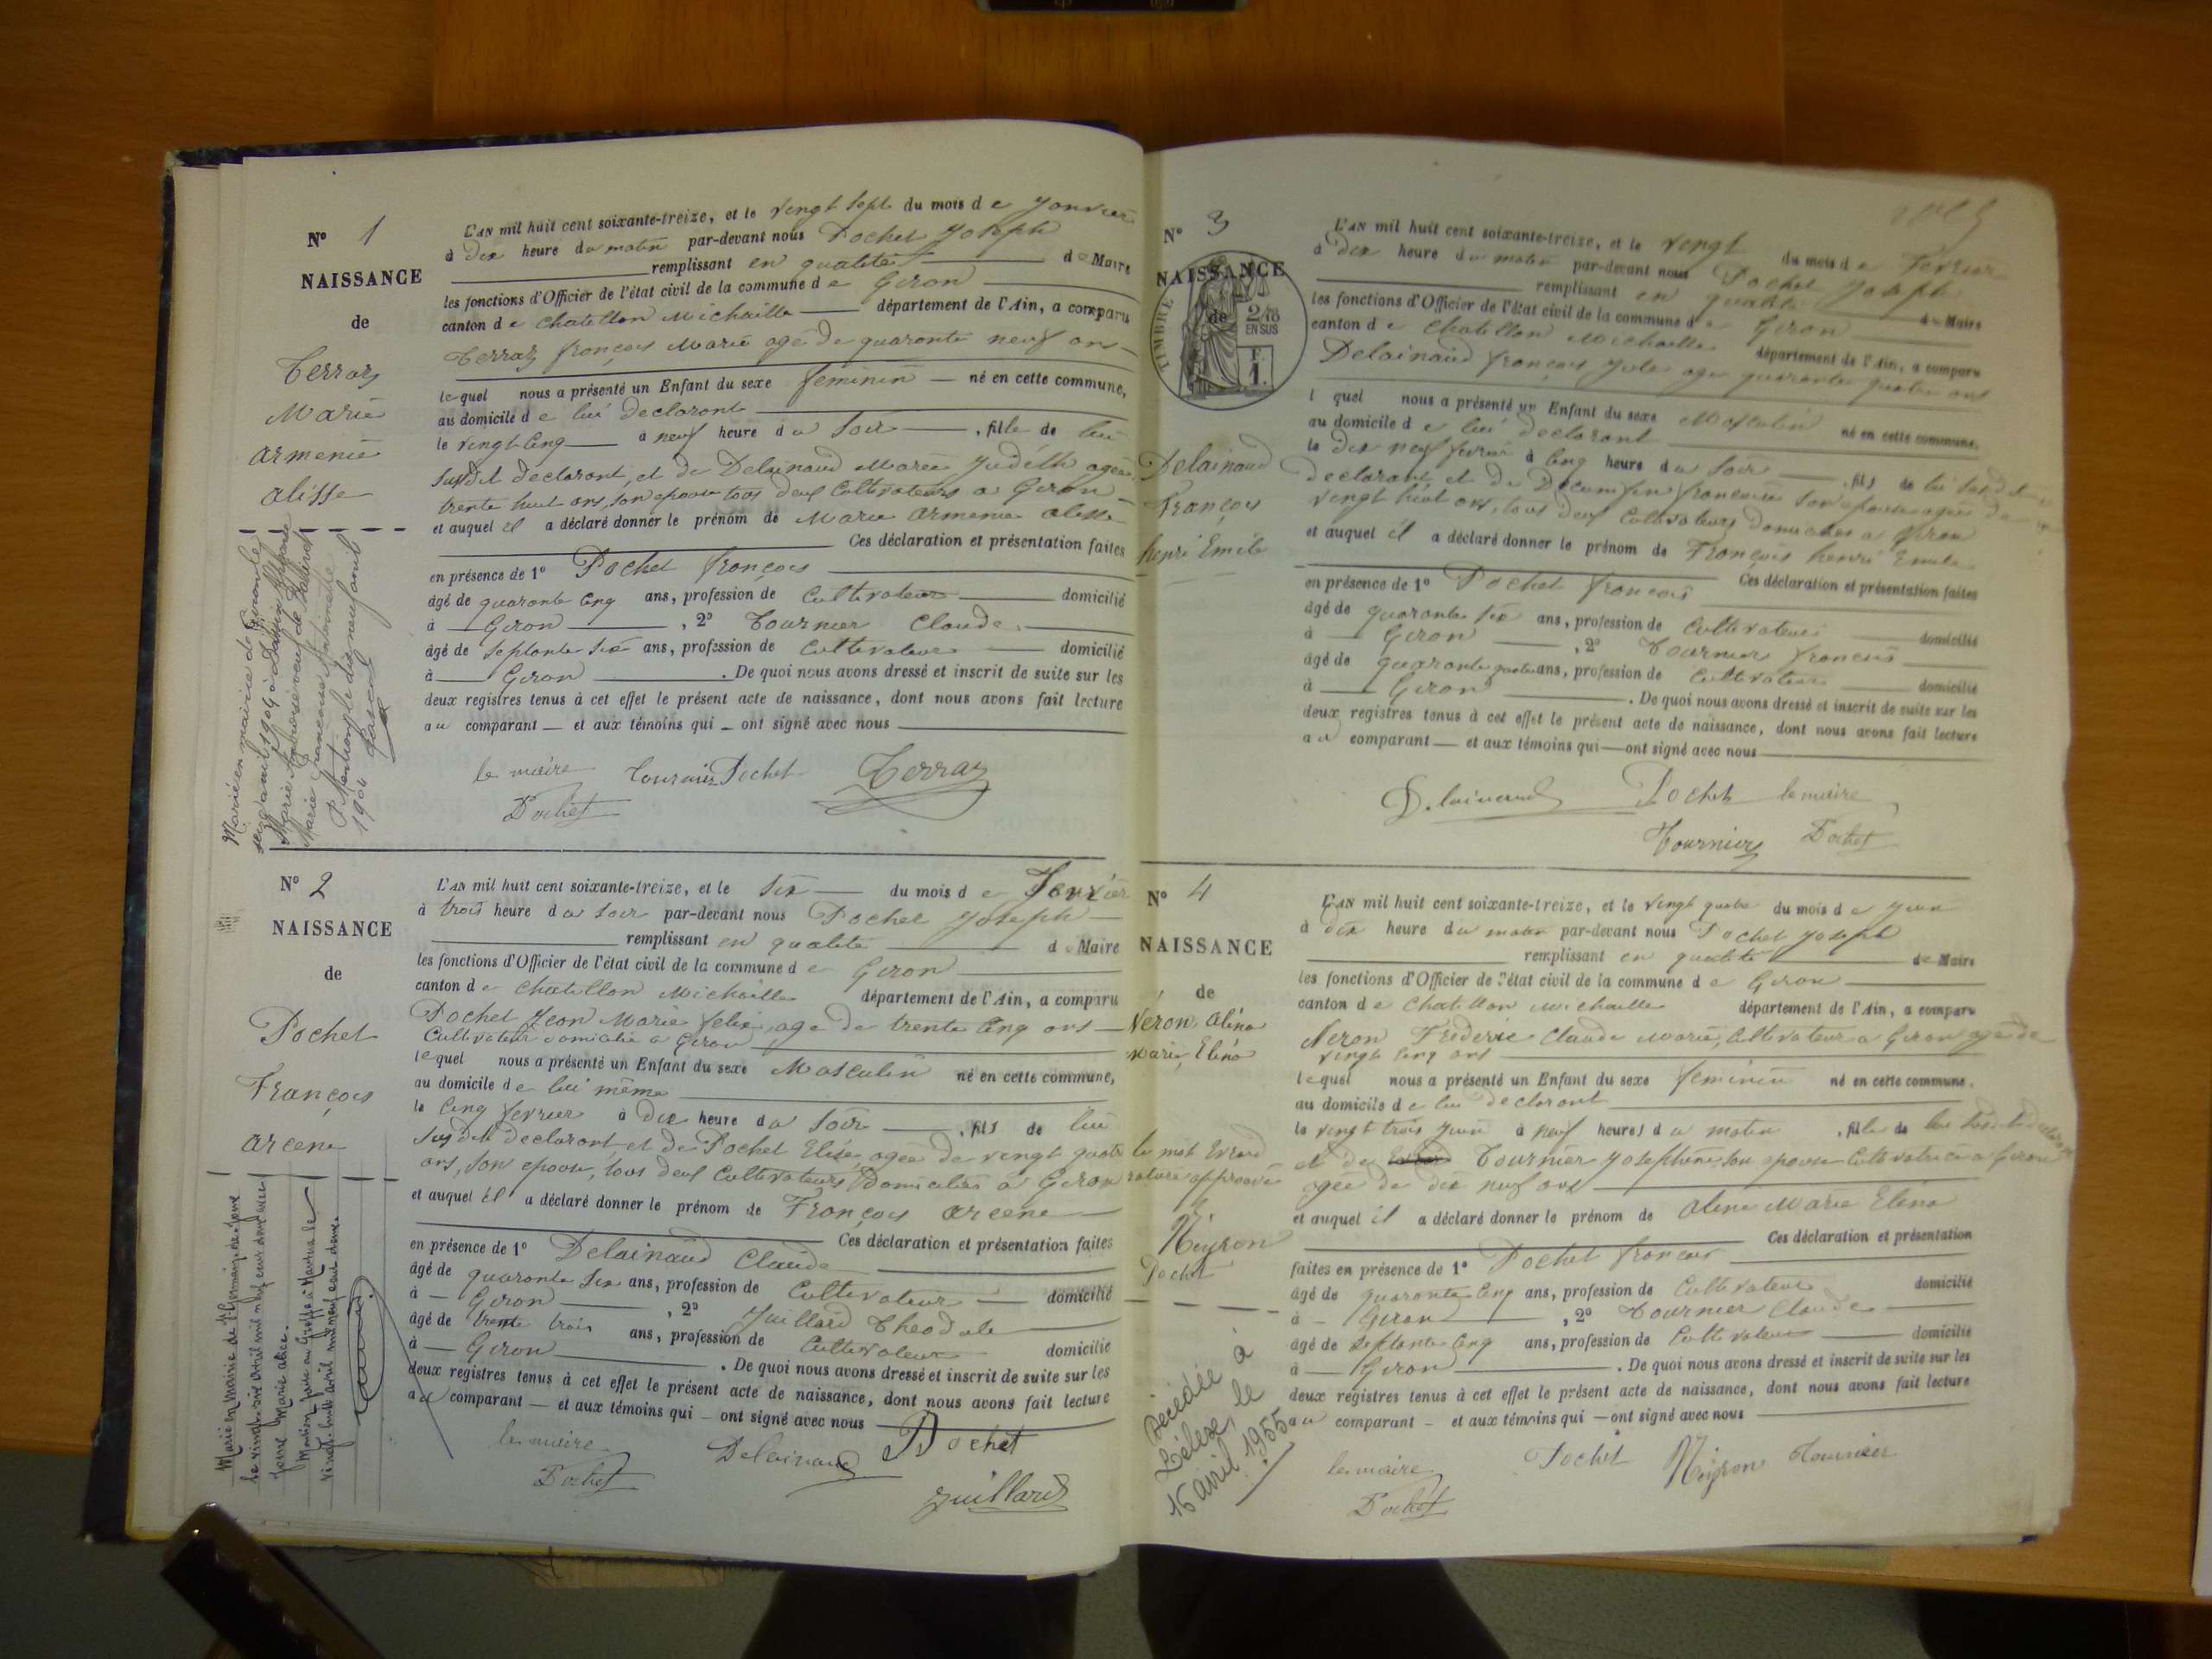 N° 1
NAISSANCE
de
Terraz
Marie
armenie
alisse
L'AN mil huit cent soixante-treize, et le vingt sept du mois de Janvier
à dix heure du matin par-devant nous Pochet Joseph
remplissant en qualité de Maire
les fonctions d'Officier de l'état civil de la commune de Giron
canton de Chatillon Michaille département de l'Ain, a comparu
Terraz françois Marie agé de quarante neuf ans
lequel nous a présenté un Enfant du sexe feminin né en cette commune,
au domicile de lui declarant
le vingt cinq à neuf heure du soir , fille de lui
susdit declarant, et de Delainaud Marie Judith agée
trente huit ans, son epouse tous deux Cultivateurs a Giron
et auquel il a déclaré donner le prénom de Marie armenie alisse
Ces déclaration et présentation faites
en présence de 1° Pochet françois
âgé de quarante cinq ans, profession de Cultivateur domicilié
à Giron , 2° Tournier Claude
âgé de septante six ans, profession de Cultivateur domicilié
à Giron . De quoi nous avons dressé et inscrit de suite sur les
deux registres tenus à cet effet le présent acte de naissance, dont nous avons fait lecture
au comparant et aux témoins qui ont signé avec nous
le maire Tournier Pochet Terraz
Pochet
Marié en mairie de Giron le
seize avril 1904 à
Marie veuf de
Marie
1904
N° 2
NAISSANCE
de
Pochet
François
arcene
L'AN mil huit cent soixante-treize, et le six du mois de Fevrier
à trois heure du soir par-devant nous Pochet Joseph
remplissant en qualité de Maire
les fonctions d'Officier de l'état civil de la commune de Giron
canton de Chatillon Michaille département de l'Ain, a comparu
Pochet Jean Marie felix, age de trente cinq ans
Cultivateur domicilié a Giron
lequel nous a présenté un Enfant du sexe Masculin né en cette commune,
au domicile de lui même
le cinq fevrier à dix heure du soir , fils de lui
susdit declarant, et de Pochet Elise, agée de vingt quatre
ans, son epouse, tous deux Cultivateurs Domiciliés a Giron
et auquel il a déclaré donner le prénom de François arcene
Ces déclaration et présentation faites
en présence de 1° Delainaud Claude
âgé de quarante six ans, profession de Cultivateur domicilié
à Giron , 2° Juillard Theodule
âgé de trente trois ans, profession de Cultivateur domicilié
à Giron . De quoi nous avons dressé et inscrit de suite sur les
deux registres tenus à cet effet le présent acte de naissance, dont nous avons fait lecture
au comparant et aux témoins qui ont signé avec nous
le maire Delainaud Pochet
Pochet Juillard
Marié en mairie de St Germain de Joux
le vingt six avril mil neuf cent
Marie alice.
Mention faite au Greffe à Nantua le
vingt huit avril mil neuf cent
N° 3
NAISSANCE
de
TIMBRE
2/10
EN SUS
F.
1.
Delainaud
François
henri Emile
L'AN mil huit cent soixante-treize, et le vingt du mois de Fevrier
à dix heure du matin par-devant nous Pochet Joseph
remplissant en qualité de Maire
les fonctions d'Officier de l'état civil de la commune de Giron
canton de Chatillon Michaille département de l'Ain, a comparu
Delainaud françois Jule age quarante quatre ans
lequel nous a présenté un Enfant du sexe Masculin né en cette commune,
au domicile de lui declarant
le dix neuf fevrier à cinq heure du soir , fils de lui susdit
declarant, et de francoise son epouse agée de
vingt huit ans, tous deux Cultivateurs domiciliés a Giron
et auquel il a déclaré donner le prénom de François henri Emile
Ces déclaration et présentation faites
en présence de 1° Pochet francois
âgé de quarante six ans, profession de Cultivateur domicilié
à Giron , 2° Tournier francois
âgé de quarante quatre ans, profession de Cultivateur domicilié
à Giron . De quoi nous avons dressé et inscrit de suite sur les
deux registres tenus à cet effet le présent acte de naissance, dont nous avons fait lecture
au comparant et aux témoins qui ont signé avec nous
Delainaud Pochet le maire
Tournier Pochet
N° 4
NAISSANCE
de
Neron, alina
Marie, Elina
le mot
raturé approuvé
Neyron
Pochet
Décédée à
Lélex, le
16 avril 1955
L'AN mil huit cent soixante-treize, et le vingt quatre du mois de Juin
à dix heure du matin par-devant nous Pochet Joseph
remplissant en qualité de Maire
les fonctions d'Officier de l'état civil de la commune de Giron
canton de Chatillon Michaille département de l'Ain, a comparu
Neron Frederic Claude Marie, Cultivateur a Giron agé de
vingt cinq ans
lequel nous a présenté un Enfant du sexe feminin né en cette commune.
au domicile de lui declarant
le vingt trois Juin à neuf heures du matin , fille de lui susdit
et de Tournier Josephine, son epouse Cultivatrice a Giron
agée de dix neuf ans
et auquel il a déclaré donner le prénom de alina Marie Elina
Ces déclaration et présentation
faites en présence de 1° Pochet francois
âgé de quarante cinq ans, profession de Cultivateur domicilié
à Giron , 2° Tournier Claude
âgé de septante cinq ans, profession de Cultivateur domicilié
à Giron . De quoi nous avons dressé et inscrit de suite sur les
deux registres tenus à cet effet le présent acte de naissance, dont nous avons fait lecture
au comparant et aux témoins qui ont signé avec nous
le maire Pochet Neyron Tournier
Pochet